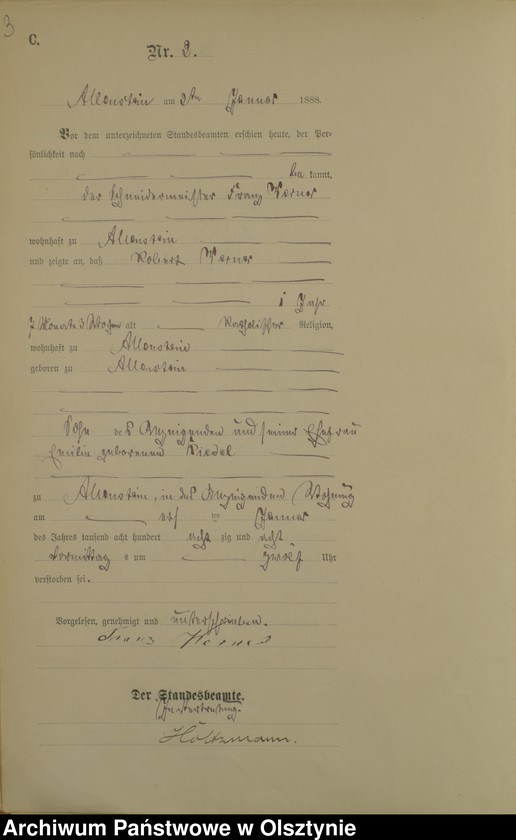 3
C.
Nr. 2.
Allenstein am 2ten Januar 1888.
Vor dem unterzeichneten Standesbeamten erschien heute, der Per-
sönlichkeit nach
be kannt,
der Schneidermeister Franz Werner
wohnhaft zu Allenstein
und zeigte an, daß Robert Werner
1 Jahr
7 Monate 3 Wochen alt katholischer Religion,
wohnhaft zu Allenstein
geboren zu Allenstein
Sohn des Anzeigenden und seiner Ehefrau
Emilie geborenen
zu Allenstein, in des Anzeigenden Wohnung
am Januar
des Jahres tausend acht hundert acht zig und acht
vormittag s um zwölf Uhr
verstorben sei.
Vorgelesen, genehmigt und unterschrieben.
Franz Werner
Der Standesbeamte.
In Vertretung.
Holtzmann.
Archiwum Państwowe w Olsztynie